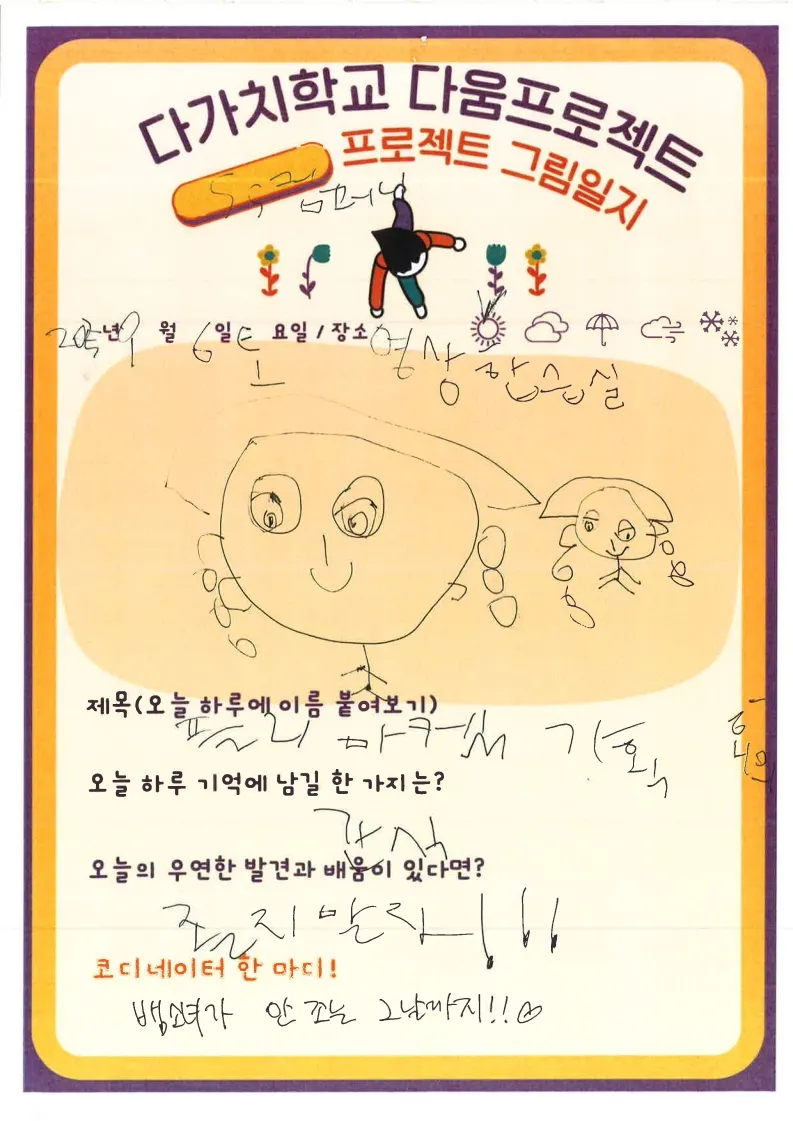 다가치학교 다움프로젝트
프로젝트 그림일지
컴퍼니
년 9 월 6 일 토 요일 / 장소 영상 학습실
제목(오늘 하루에 이름 붙여보기)
프리마켓 기획 회의
오늘 하루 기억에 남길 한 가지는?
간식
오늘의 우연한 발견과 배움이 있다면?
졸지 말자!!!
코디네이터 한 마디!
안 조는 그날까지!!